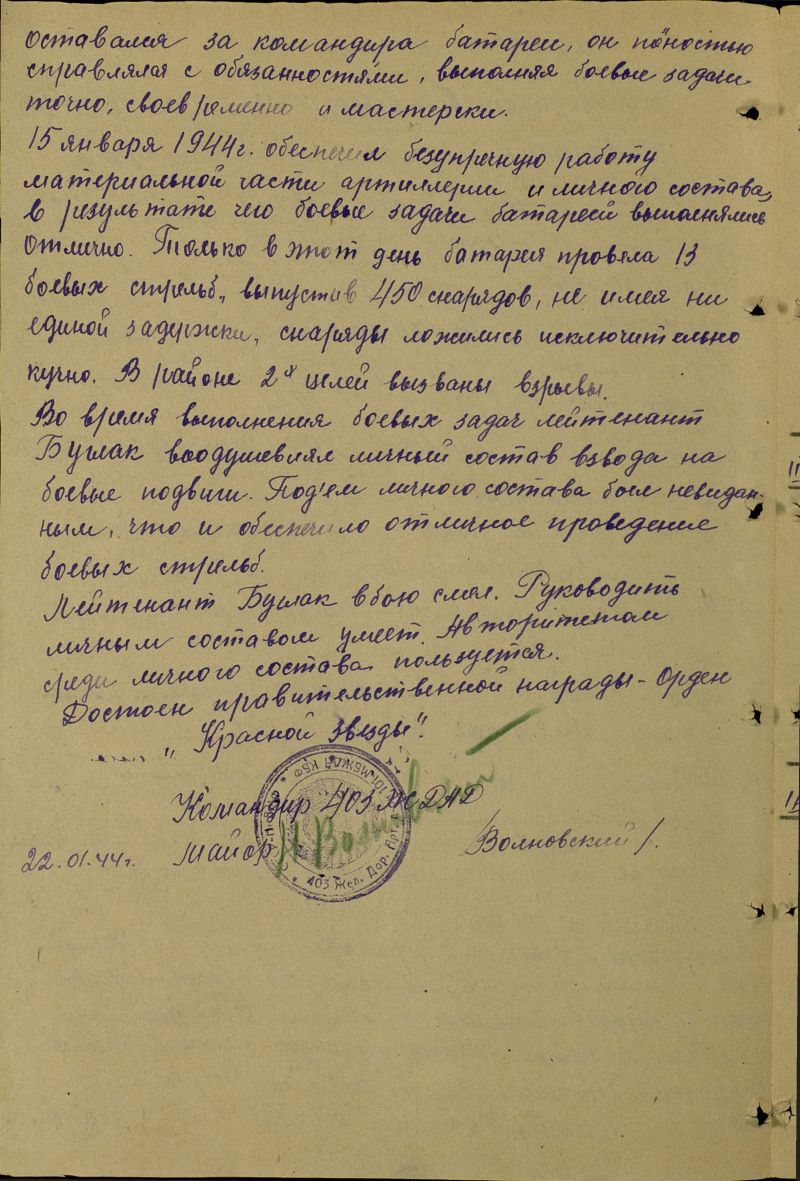 оставался за командира батареи, он поностью
справлялся с обязанностями, выполняя боевые задачи
точно, своевременно и мастерски.
15 января 1944г. обеспечил безупречную работу
материальной части артиллерии и личного состава,
в результате чего боевые задачи батареей выполнялись
отлично. Только в этот день батарея провела 13
боевых стрельб, выпустив 450 снарядов, не имея ни
единой задержки, снаряды ложились исключительно
кучно. В районе 2х целей вызваны взрывы.
Во время выполнения боевых задач лейтенант
Буглак воодушевлял личный состав взвода на
боевые подвиги. Под'ем личного состава был невидан-
ным, что и обеспечило отличное проведение
боевых стрельб.
Лейтенант Буглак в бою смел. Руководить
личным составом умеет. Авторитетом
среди личного состава пользуется.
Достоен правительственной награды - Орден
„Красной звезды".
Командир 403 ЖДАД
Майор Волновский /.
22.01.44г.
101 МБЖДА КБФ
403 Жел. Дор. Арт.